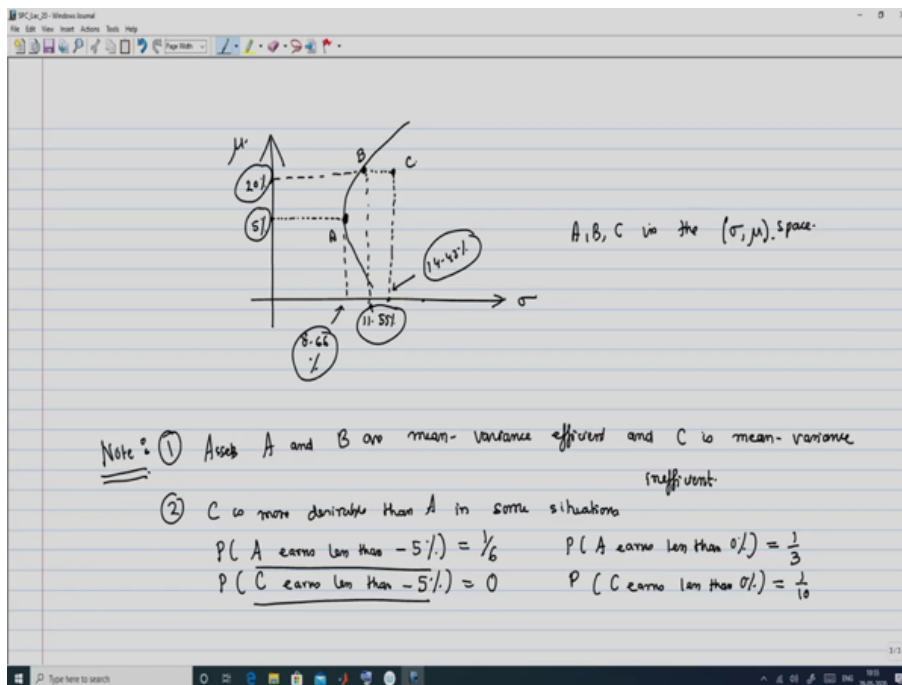 SPC_Lec_20 - Windows Journal
File Edit View Insert Actions Tools Help
Page Width
μ
B
C
20%
5%
A
14.43%
A, B, C in the (σ, μ) space.
σ
11.55%
8.66
%
Note: ① Assets A and B are mean-variance efficient and C is mean-variance
inefficient.
② C is more desirable than A in some situations
P( A earns less than -5%) = 1/6 P( A earns less than 0%) = 1/3
P( C earns less than -5%) = 0 P( C earns less than 0%) = 1/10
3/3
Type here to search
ENG
10:55